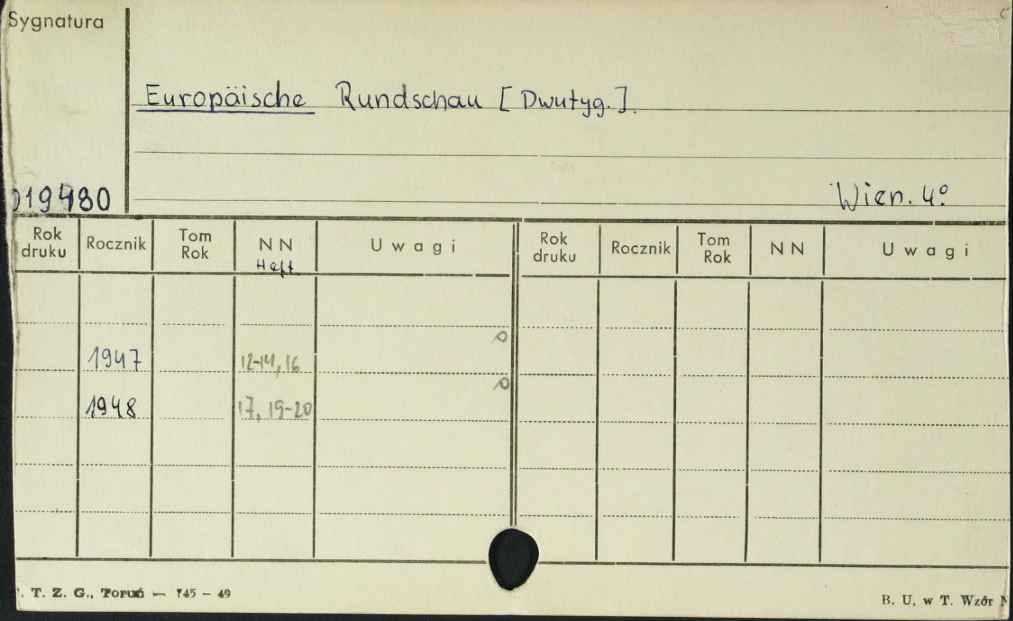 Sygnatura
Europäische Rundschau [Dwutyg.].
019480
Wien. 4º
Rok druku Rocznik Tom Rok NN Heft Uwagi Rok druku Rocznik Tom Rok NN Uwagi
1947 12-14, 16
1948 17, 19-20
. T. Z. G., Toruń — 745 – 49
B. U. w T. Wzór